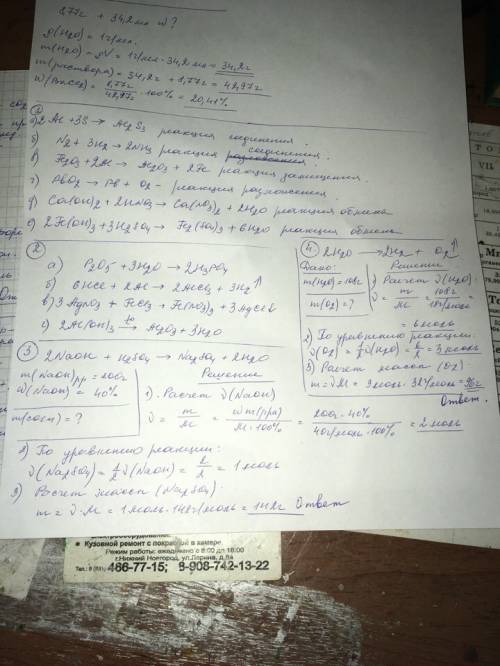 8,77г + 34,2мл w?
ρ(H2O) = 1г/мл.
m(H2O) = ρV = 1г/мл · 34,2мл = 34,2г
m(раствора) = 34,2г + 8,77г = 42,97г
8,77г / 42,97г · 100% = 20,41%
①
а) 2Al + 3S → Al2S3 реакция соединения.
б) N2 + 3H2 → 2NH3 реакция соединения
в) Fe2O3 + 2Al → Al2O3 + 2Fe реакция замещения
г) PbO2 → Pb + O2 - реакция разложения
д) Ca(OH)2 + 2HNO3 → Ca(NO3)2 + 2H2O реакция обмена
е) 2Fe(OH)3 + 3H2SO4 → Fe2(SO4)3 + 6H2O реакция обмена
②
а) P2O5 + 3H2O → 2H3PO4
б) 6HCl + 2Al → 2AlCl3 + 3H2↑
в) 3AgNO3 + FeCl3 → Fe(NO3)3 + 3AgCl↓
г) 2Al(OH)3 → Al2O3 + 3H2O
④ 2H2O → 2H2 + O2↑
Дано:
m(H2O) = 108г
m(O2) = ?
Решение
1) Расчет ν(H2O):
ν = m/M = 108г / 18г/моль =
= 6 моль
2) По уравнению реакции
ν(O2) = 1/2 ν(H2O) = 6/2 = 3 моль
3) Расчет массы (O2)
m = ν·M = 3 моль · 32г/моль = 96г
Ответ.
③ 2NaOH + H2SO4 → Na2SO4 + 2H2O
m(NaOH)рр = 200г
w(NaOH) = 40%
m(соли) = ?
Решение
1). Расчет ν(NaOH)
ν = m/M = w·m(рра) / M·100% = 200г · 40% / 40г/моль · 100% = 2 моль
2) По уравнению реакции:
ν(Na2SO4) = 1/2 ν(NaOH) = 2/2 = 1 моль
3) Расчет массы (Na2SO4)
m = ν·M = 1 моль · 142г/моль = 142г Ответ
• Кузовной ремонт с покраской в камере.
Режим работы: ежедневно с 8:00 до 18:00
г.Нижний Новгород, ул.Ларина, д.9а
466-77-15; 8-908-742-13-22